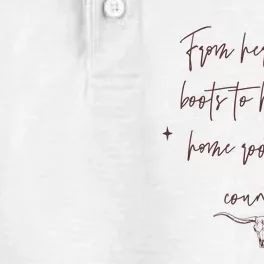 From her
boots to h
home roo
coun